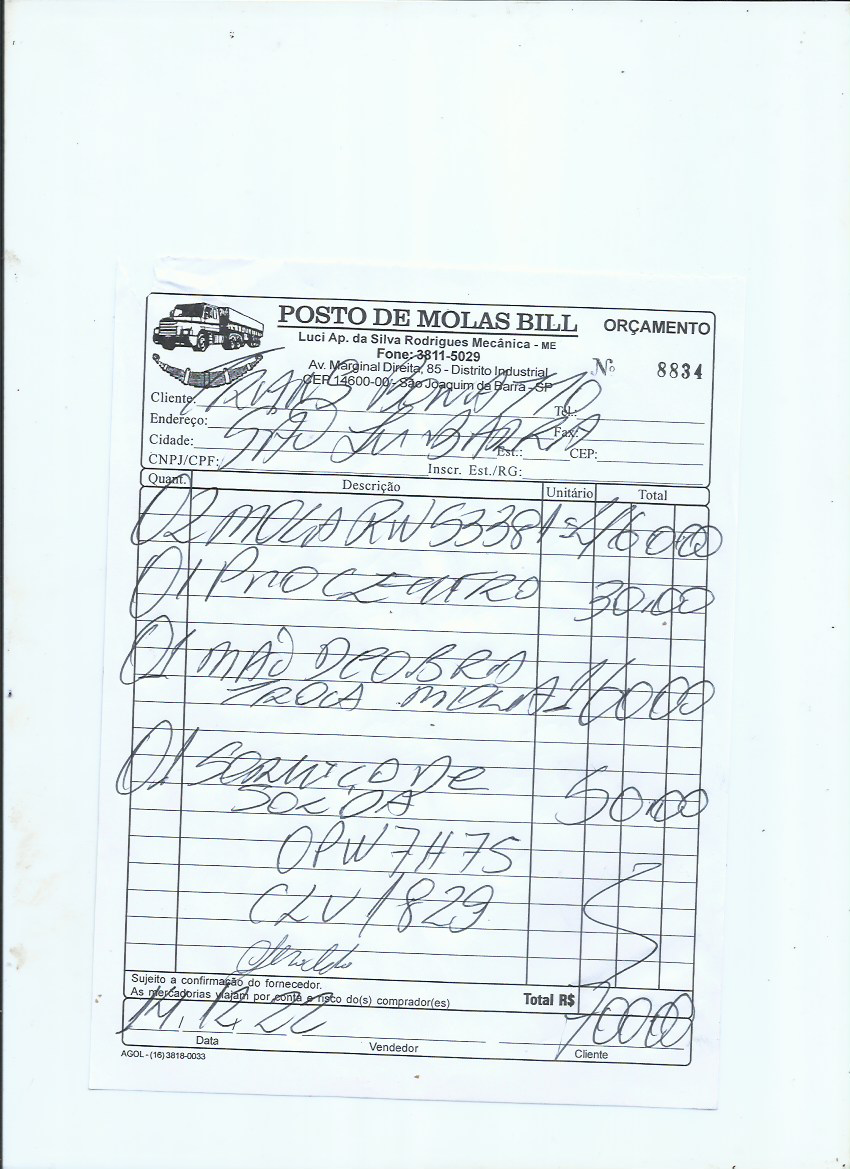 POSTO DE MOLAS BILL
ORÇAMENTO
Luci Ap. da Silva Rodrigues Mecânica - ME
Fone: 3811-5029
Av. Marginal Direita, 85 - Distrito Industrial
CEP 14600-00 - São Joaquim da Barra - SP
Nº 8834
Cliente: TRANS Tel.:
Endereço: Fax:
Cidade: SÃO BARRA Est.: CEP:
CNPJ/CPF: Inscr. Est./RG:
Quant. Descrição Unitário Total
02 MOLA RW 53381 460,00
01 PINO CENTRO 30,00
01 MÃO DE OBRA
TROCA MOLA 160,00
01 SERVIÇO DE
SOLDA 50,00
OPW7H75
CLV1829
Geraldo
Sujeito a confirmação do fornecedor.
As mercadorias viajam por conta e risco do(s) comprador(es)
Total R$ 700,00
14.12.22
Data Vendedor Cliente
AGOL - (16) 3818-0033